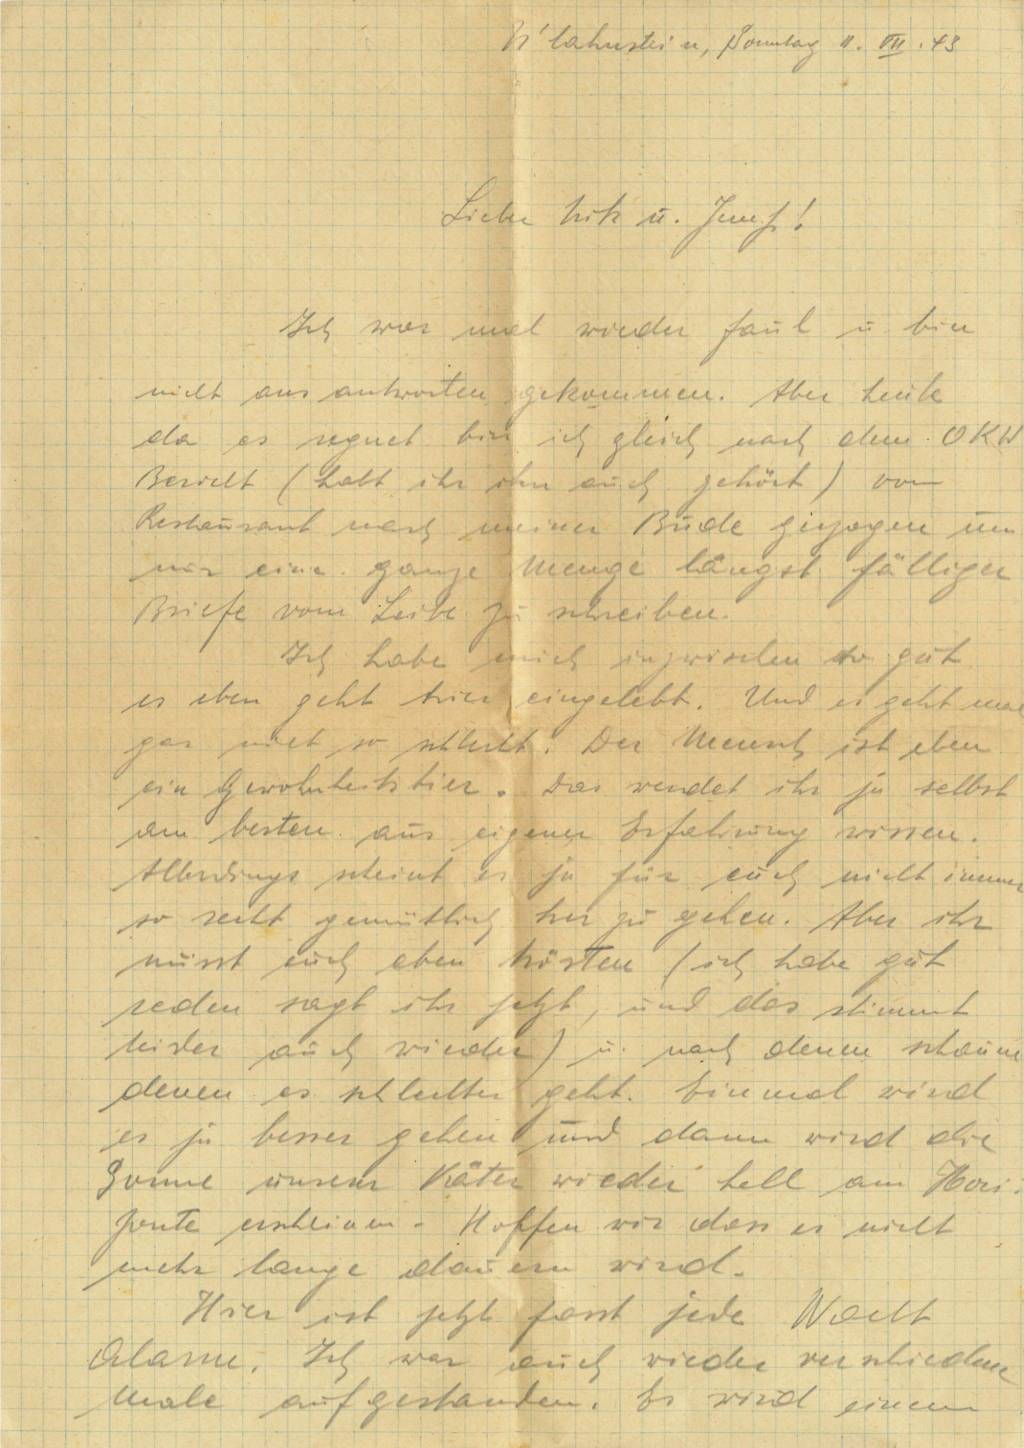 N'lahnstein, Sonntag 11. VII. 43
Liebe u. Jemp!
Ich war mal wieder faul u bin
nicht ans antworten gekommen. Aber heute
da es regnet bin ich gleich nach dem OKW
Bericht (habt ihr ihn auch gehört) vom
Restaurant nach meiner Bude gezogen um
mir eine ganze Menge längst fälliger
Briefe vom Leibe zu schreiben.
Ich habe mich inzwischen so gut
es eben geht hier eingelebt. Und es geht mal
gar nicht so schlecht. Der Mensch ist eben
ein Gewohnheitstier. Das werdet ihr ja selbst
am besten aus eigener Erfahrung wissen.
Allerdings scheint es ja für euch nicht immer
so recht gemütlich her zu gehen. Aber ihr
müsst euch eben trösten (ich habe gut
reden sagt ihr jetzt, und das stimmt
leider auch wieder) u. nach denen schauen
denen es schlechter geht. Einmal wird
es ja besser gehen und dann wird die
Sonne wieder hell am Hori-
zonte erscheinen. Hoffen wir dass es nicht
mehr lange dauern wird.
Hier ist jetzt fasst jede Nacht
Alarm. Ich war auch wieder verschiedene
Male aufgestanden. Es wird einem